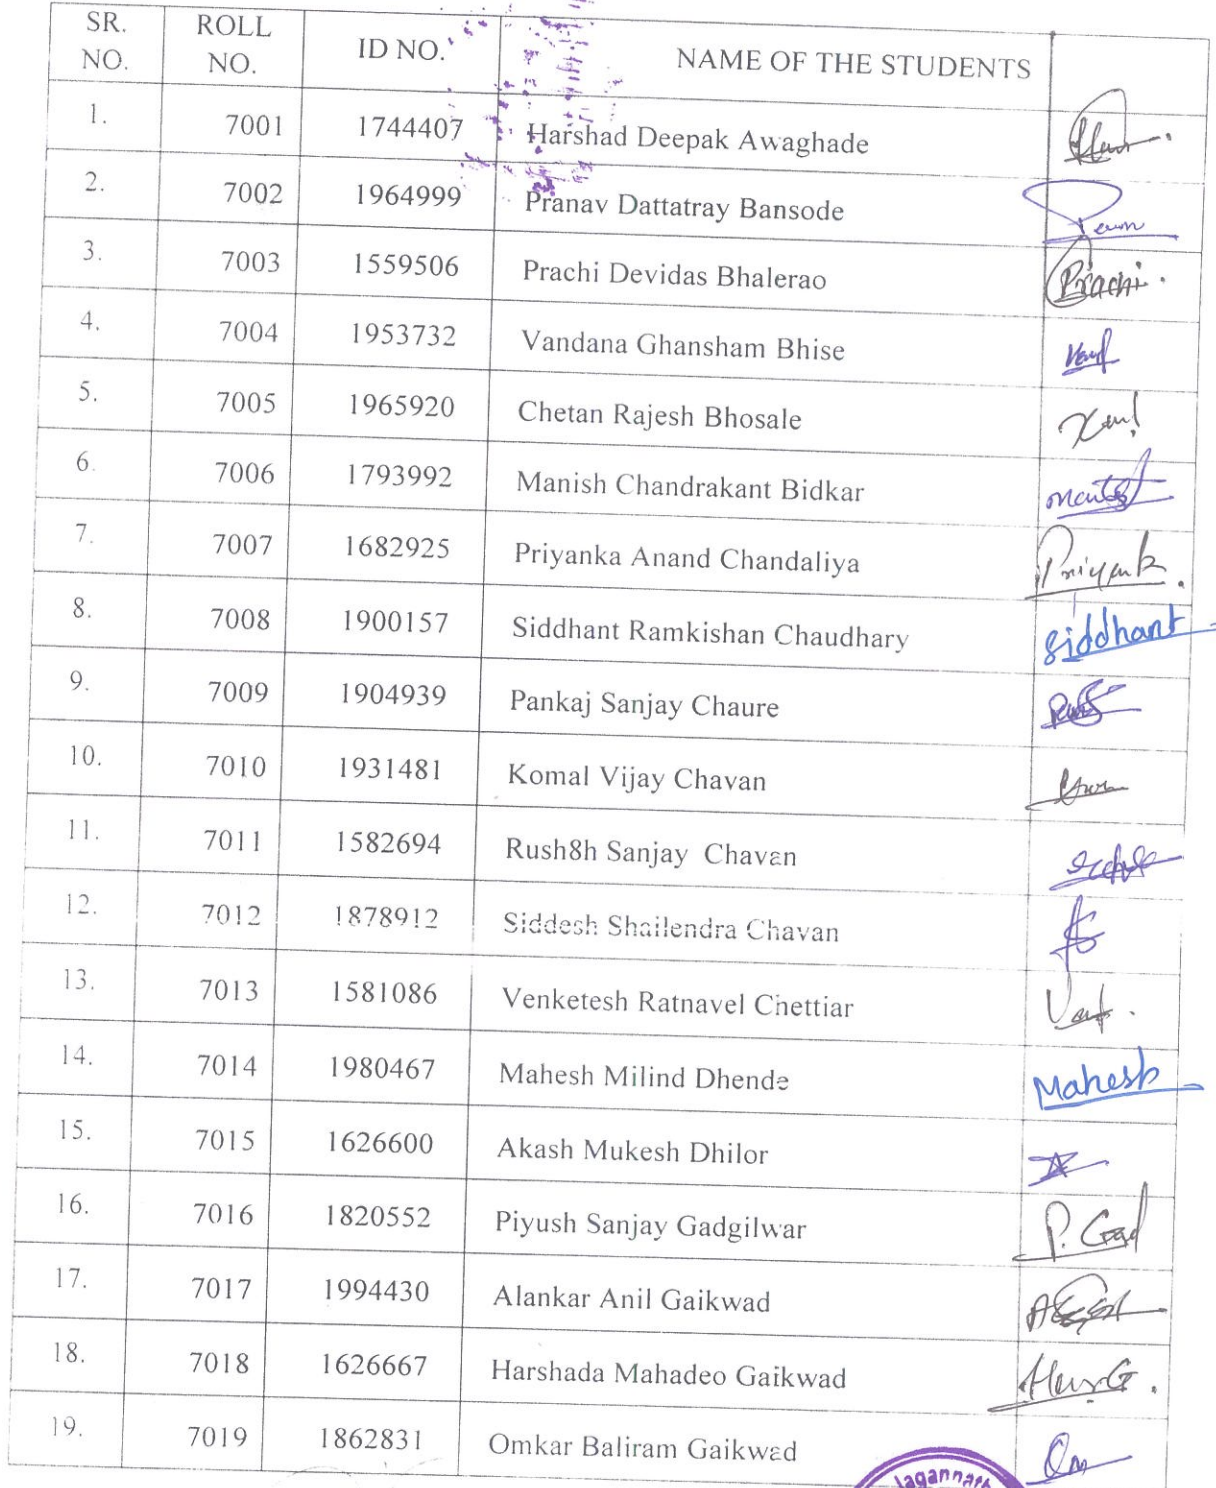 SR. NO. ROLL NO. ID NO. NAME OF THE STUDENTS
1. 7001 1744407 Harshad Deepak Awaghade
2. 7002 1964999 Pranav Dattatray Bansode
3. 7003 1559506 Prachi Devidas Bhalerao Prachi.
4. 7004 1953732 Vandana Ghansham Bhise
5. 7005 1965920 Chetan Rajesh Bhosale
6. 7006 1793992 Manish Chandrakant Bidkar
7. 7007 1682925 Priyanka Anand Chandaliya
8. 7008 1900157 Siddhant Ramkishan Chaudhary Siddhant
9. 7009 1904939 Pankaj Sanjay Chaure
10. 7010 1931481 Komal Vijay Chavan
11. 7011 1582694 Rush8h Sanjay Chavan
12. 7012 1878912 Siddesh Shailendra Chavan
13. 7013 1581086 Venketesh Ratnavel Chettiar
14. 7014 1980467 Mahesh Milind Dhende Mahesh
15. 7015 1626600 Akash Mukesh Dhilor
16. 7016 1820552 Piyush Sanjay Gadgilwar P. Gad
17. 7017 1994430 Alankar Anil Gaikwad
18. 7018 1626667 Harshada Mahadeo Gaikwad
19. 7019 1862831 Omkar Baliram Gaikwad Om
Jagannath